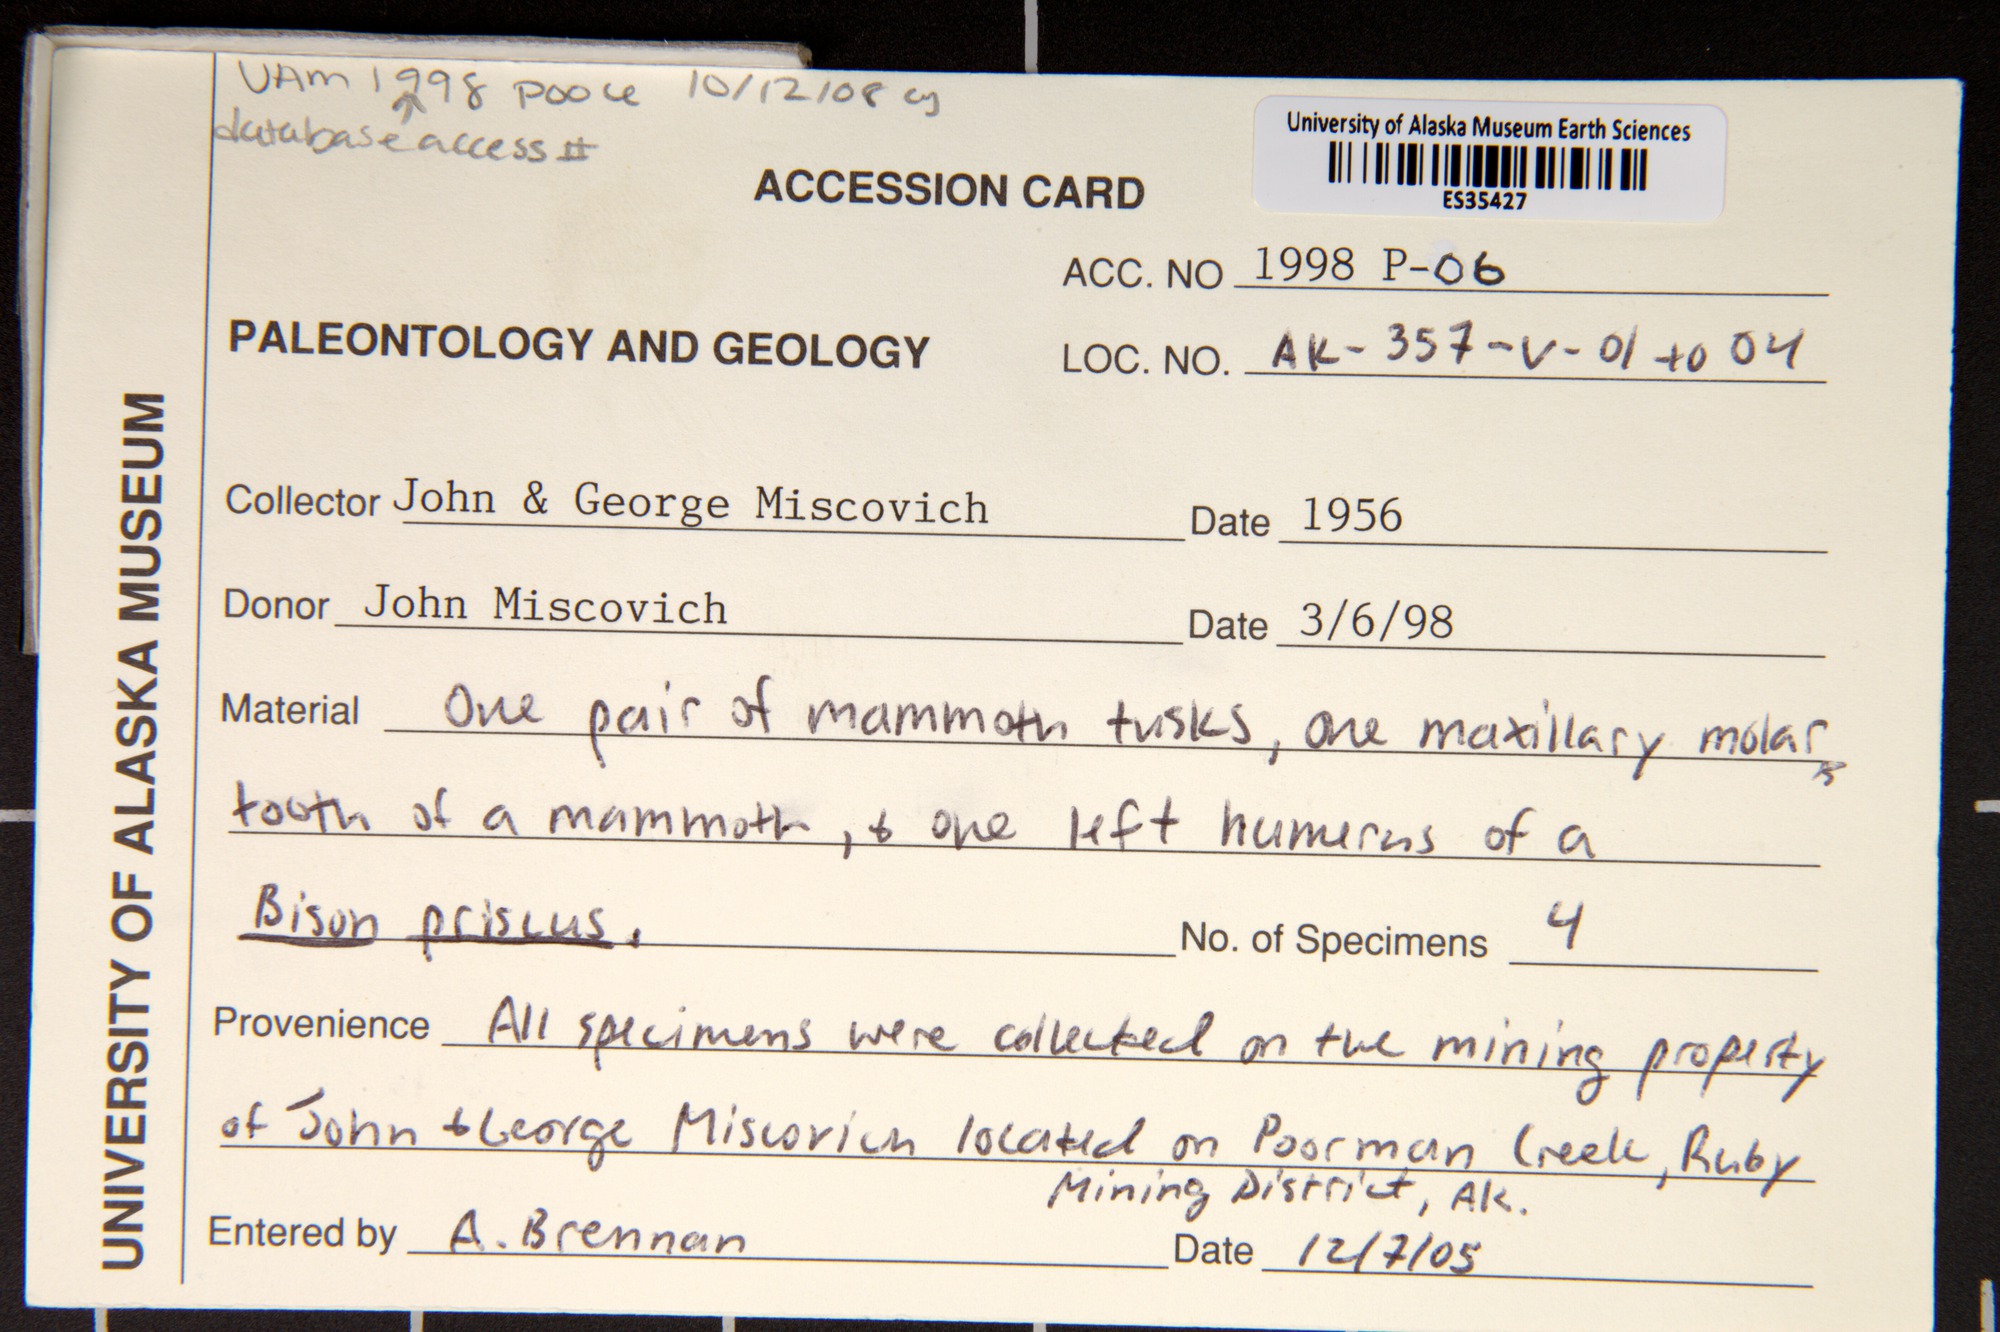 UAM 1998 P006 10/12/08 cg
database access #
University of Alaska Museum Earth Sciences
ES35427
ACCESSION CARD
ACC. NO 1998 P-06
PALEONTOLOGY AND GEOLOGY
LOC. NO. AK-357-V-01 to 04
UNIVERSITY OF ALASKA MUSEUM
Collector John & George Miscovich Date 1956
Donor John Miscovich Date 3/6/98
Material One pair of mammoth tusks, one maxillary molar
tooth of a mammoth, & one left humerus of a
Bison priscus. No. of Specimens 4
Provenience All specimens were collected on the mining property
of John & George Miscovich located on Poorman Creek, Ruby
Mining District, AK.
Entered by A. Brennan Date 12/7/05